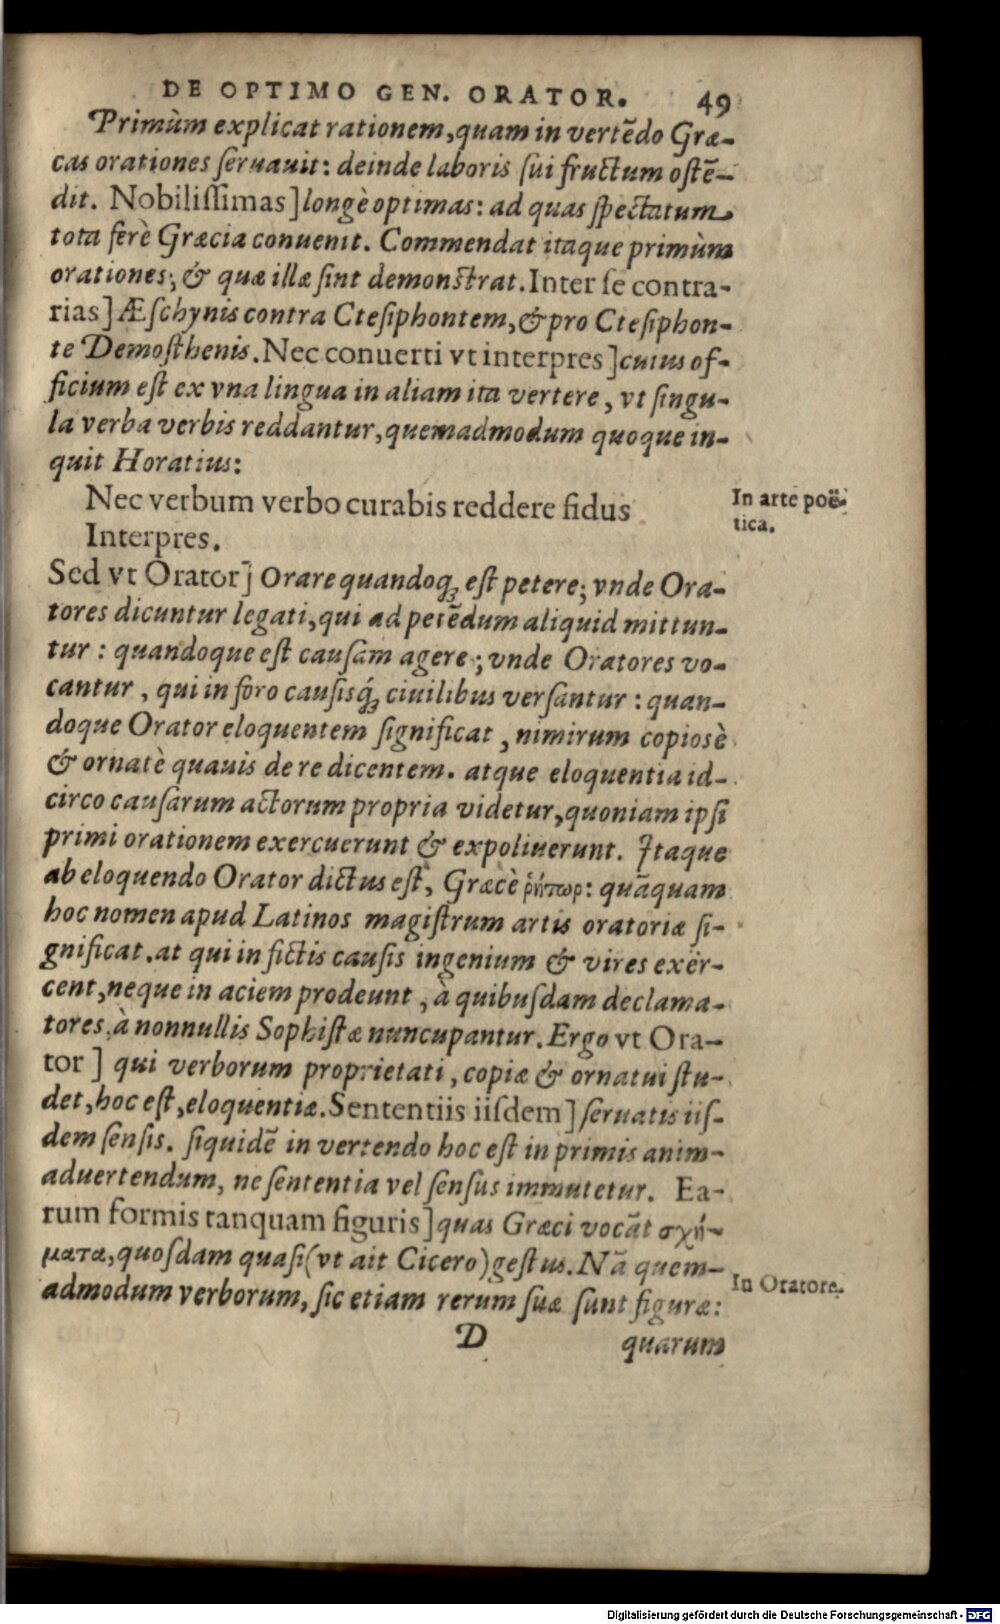 DE OPTIMO GEN. ORATOR. 49
Primùm explicat rationem, quam in vertẽdo Græ-
cas orationes ſeruauit: deinde laboris ſui fructum oſtẽ-
dit. Nobiliſſimas] longè optimas: ad quas ſpectatum
tota ferè Græcia conuenit. Commendat itaque primùm
orationes; & quæ illæ ſint demonſtrat. Inter ſe contra-
rias] Æſchynis contra Cteſiphontem, & pro Cteſiphon-
te Demoſthenis. Nec conuerti vt interpres] cuius of-
ficium eſt ex vna lingua in aliam ita vertere, vt ſingu-
la verba verbis reddantur, quemadmodum quoque in-
quit Horatius:
Nec verbum verbo curabis reddere fidus
Interpres.
In arte poë-
tica.
Sed vt Orator] Orare quandoq; eſt petere; vnde Ora-
tores dicuntur legati, qui ad petẽdum aliquid mittun-
tur: quandoque eſt cauſam agere; vnde Oratores vo-
cantur, qui in foro cauſisq́; ciuilibus verſantur: quan-
doque Orator eloquentem ſignificat, nimirum copiosè
& ornatè quauis de re dicentem. atque eloquentia id-
circo cauſarum actorum propria videtur, quoniam ipſi
primi orationem exercuerunt & expoliuerunt. Itaque
ab eloquendo Orator dictus eſt, Græcè ῥήτωρ: quãquam
hoc nomen apud Latinos magiſtrum artis oratoriæ ſi-
gnificat. at qui in fictis cauſis ingenium & vires exer-
cent, neque in aciem prodeunt, à quibuſdam declama-
tores, à nonnullis Sophiſtæ nuncupantur. Ergo vt Ora-
tor] qui verborum proprietati, copiæ & ornatui ſtu-
det, hoc eſt, eloquentiæ. Sententiis iiſdem] ſeruatis iiſ-
dem ſenſis. ſiquidẽ in vertendo hoc eſt in primis anim-
aduertendum, ne ſententia vel ſenſus immutetur. Ea-
rum formis tanquam figuris] quas Græci vocãt σχή-
ματα, quoſdam quaſi (vt ait Cicero) geſtus. Nã quem-
admodum verborum, ſic etiam rerum ſuæ ſunt figuræ:
In Oratore.
D quarum
Digitalisierung gefördert durch die Deutsche Forschungsgemeinschaft - DFG